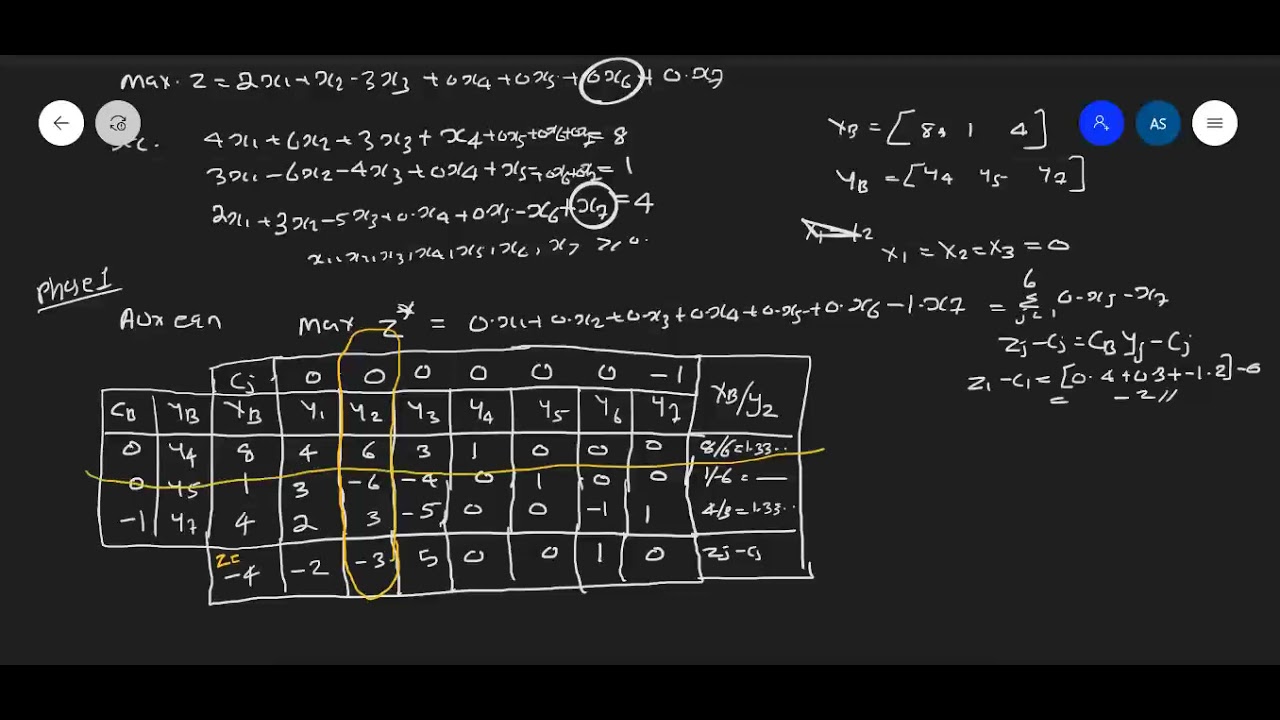 max. Z = 2x1 + x2 - 3x3 + 0x4 + 0x5 + 0x6 + 0.x7
4x1 + 6x2 + 3x3 + x4 + 0x5 + 0x6 + 0x7 = 8
3x1 - 6x2 - 4x3 + 0x4 + x5 + 0x6 + 0x7 = 1
2x1 + 3x2 - 5x3 + 0.x4 + 0x5 - x6 + x7 = 4
x1, x2, x3, x4, x5, x6, x7 ≥ 0.
XB = [8, 1 4]
YB = [Y4 Y5 Y7]
x1 = x2 = x3 = 0
AS
Phase 1
Aux eqn max Z* = 0.x1 + 0.x2 + 0.x3 + 0.x4 + 0.x5 + 0.x6 - 1.x7 = 6 Σ j=1 0.xj - x7
Zj - Cj = CB Yj - Cj
Z1 - C1 = [0.4 + 0.3 + -1.2] - 0
= -2 //
Cj 0 0 0 0 0 0 -1 XB/Y2
CB YB XB Y1 Y2 Y3 Y4 Y5 Y6 Y7
0 Y4 8 4 6 3 1 0 0 0 8/6 = 1.33..
0 Y5 1 3 -6 -4 0 1 0 0 1/-6 = —
-1 Y7 4 2 3 -5 0 0 -1 1 4/3 = 1.33..
Z=
-4 -2 -3 5 0 0 1 0 Zj - Cj